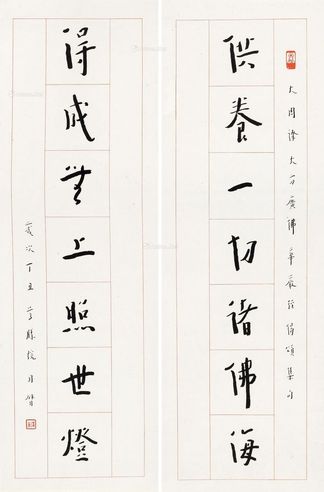 大周譯大方廣佛華嚴經偈頌集句
供養一切諸佛海
得成無上照世燈
歲次丁丑 月臂